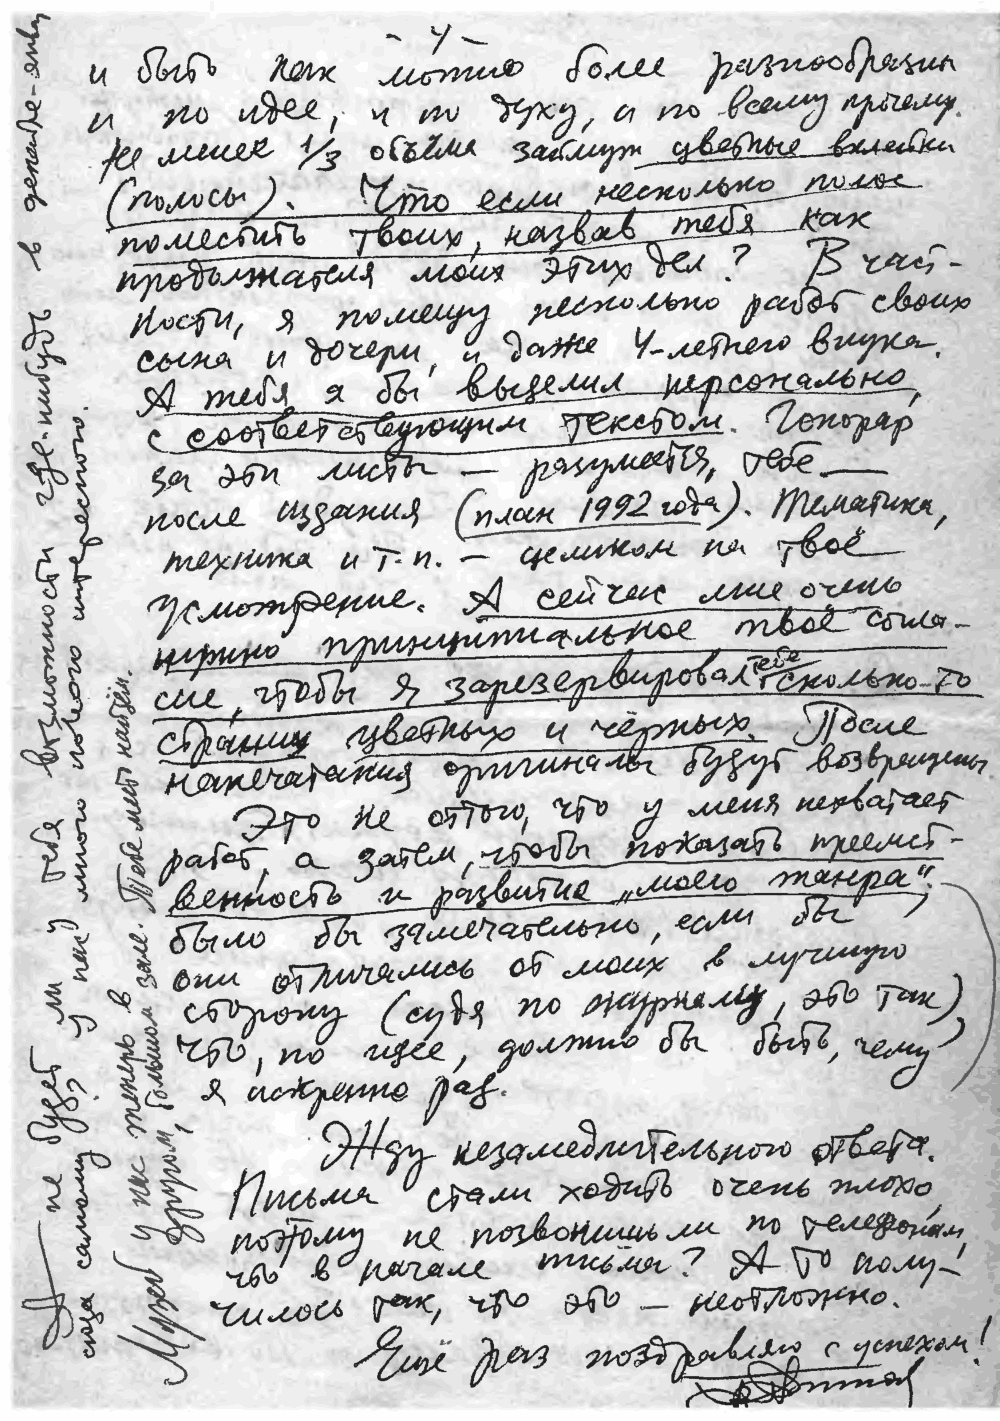 - 4 -
и быть как можно более разнообразны
и по идее, и по духу, и по всему прочему.
Не менее 1/3 объёма займут цветные вклейки
(полосы). Что если несколько полос
поместить твоих, назвав тебя как
продолжателя моих этих дел? В част-
ности, я помещу несколько работ своих
сына и дочери, и даже 4-летнего внука.
А тебя я бы выделил персонально,
с соответствующим текстом. Гонорар
за эти листы — разумеется, тебе —
после издания (план 1992 года). Тематика,
техника и т.п. — целиком на твоё
усмотрение. А сейчас мне очень
нужно принципиальное твоё согла-
сие, чтобы я зарезервировал тебе сколько-то
страниц цветных и чёрных. После
напечатания оригиналы будут возвращены.
Это не оттого, что у меня нехватает
работ, а затем, чтобы показать преемст-
венность и развитие „моего жанра".
было бы замечательно, если бы
они отличались от моих в лучшую
сторону (судя по журналу, это так),
что, по идее, должно бы быть, чему
я искренно рад.
Жду незамедлительного ответа.
Письма стали ходить очень плохо,
поэтому не позвонишь ли по телефонам,
что в начале письма? А то полу-
чилось так, что это — неотложно.
Ещё раз поздравляю с успехом!
А не будет ли у тебя возможности где-нибудь в декабре-январ
сюда самому? У нас много нового интересного.
Музей у нас теперь в
другом, большом зале. Тебе мест найдём.